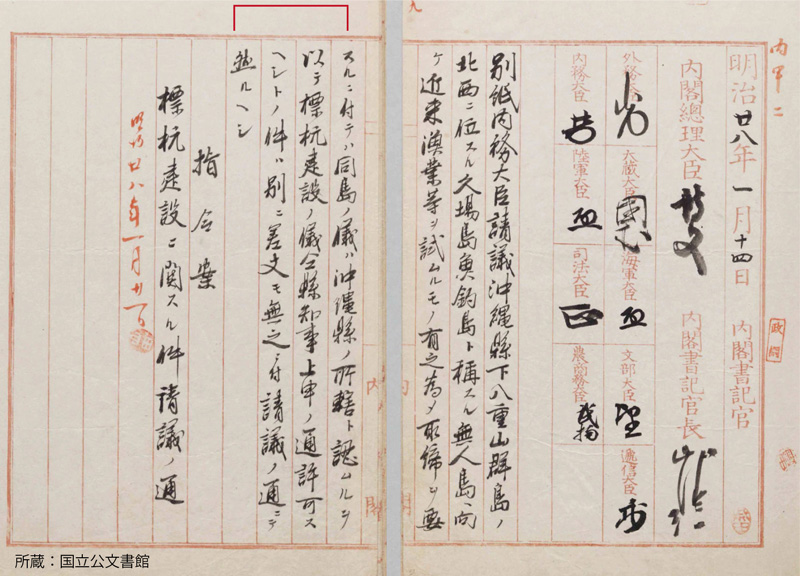 丙甲二
明治廿八年一月十四日
内閣書記官
政閣
内閣總理大臣
内閣書記官長
外務大臣
大藏大臣
海軍大臣
文部大臣
遞信大臣
内務大臣
陸軍大臣
司法大臣
農商務大臣
別紙内務大臣請議沖繩縣下八重山群島ノ
北西ニ位スル久場島魚釣島ト稱スル無人島ヘ向
ケ近来漁業等ヲ試ムルモノ有之為メ取締ヲ要
スルニ付テハ同島ノ儀ハ沖繩縣ノ所轄ト認ムルヲ
以テ標杭建設ノ儀仝縣知事上申ノ通許可ス
ヘシトノ件ハ別ニ差支モ無之ニ付請議ノ通ニテ
然ルヘシ
指令案
標杭建設ニ関スル件請議ノ通
明治廿八年一月廿一日
所蔵：国立公文書館